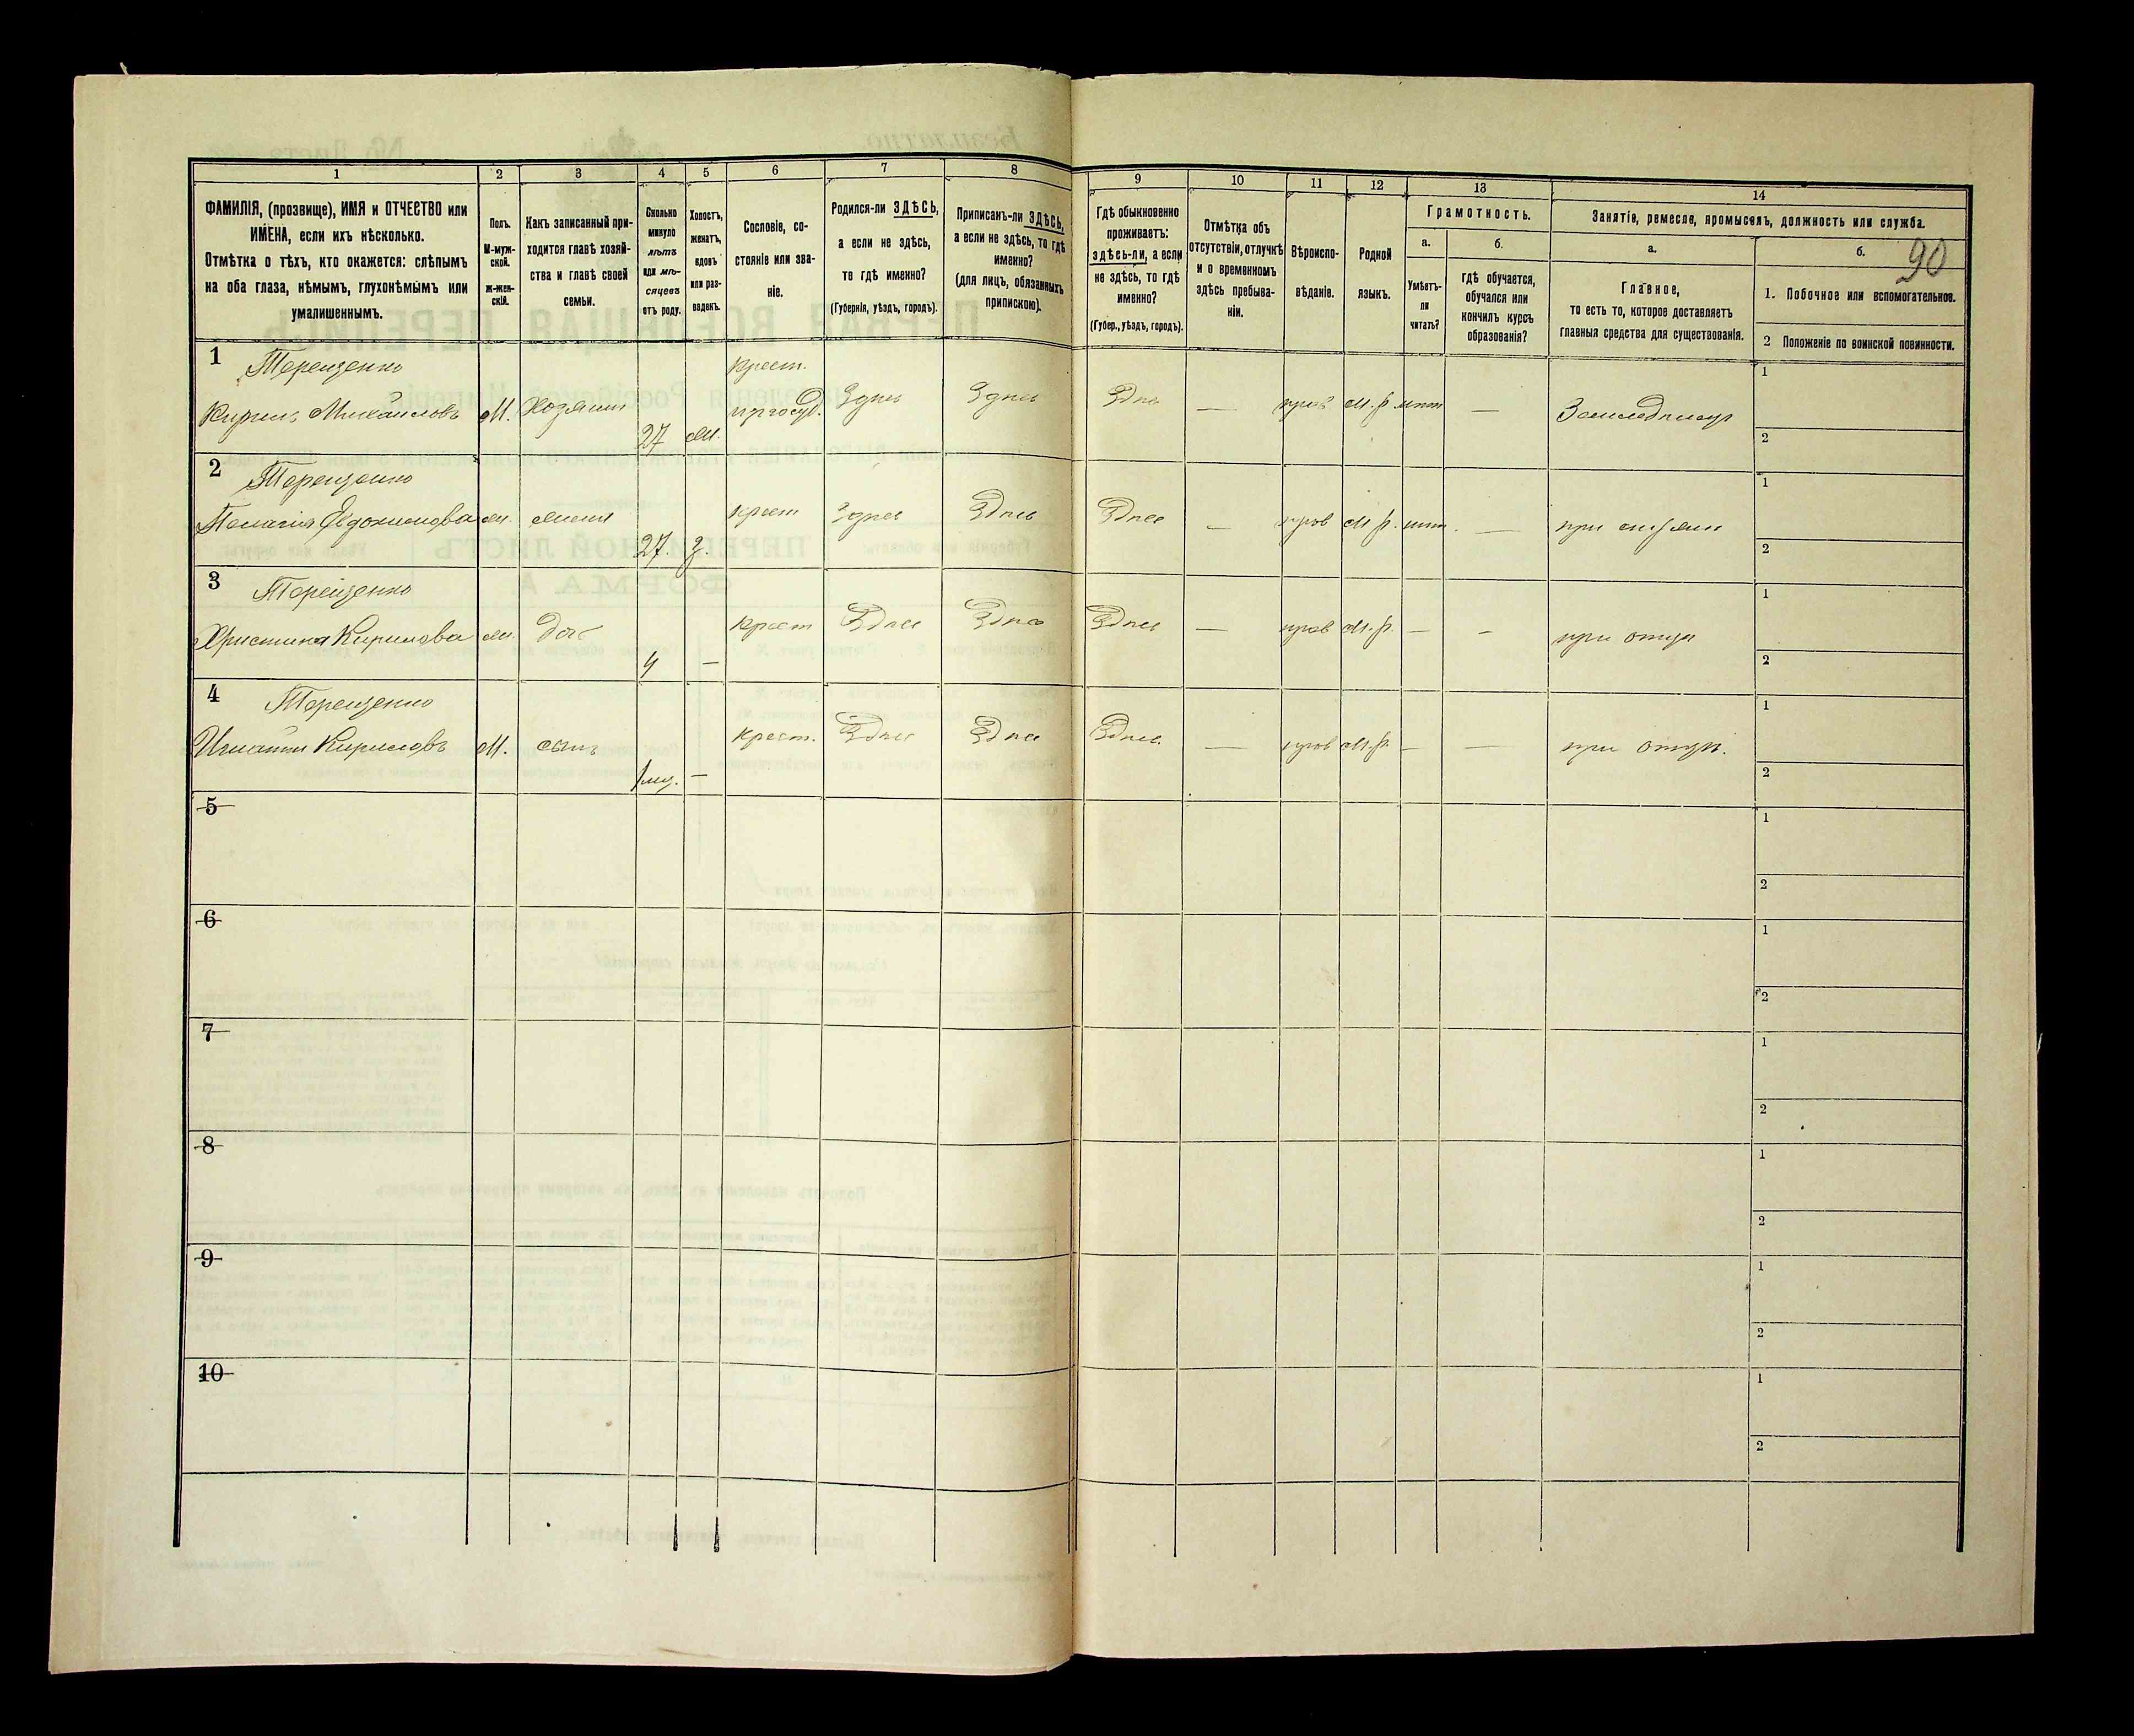 90
1 2 3 4 5 6 7 8 9 10 11 12 13 14
ФАМИЛІЯ, (прозвище), ИМЯ и ОТЧЕСТВО или
ИМЕНА, если ихъ нѣсколько.
Отмѣтка о тѣхъ, кто окажется: слѣпымъ
на оба глаза, нѣмымъ, глухонѣмымъ или
умалишеннымъ.
Полъ.
М-муж-
ской.
ж-жен-
скій.
Какъ записанный при-
ходится главѣ хозяй-
ства и главѣ своей
семьи.
Сколько
минуло
лѣтъ
или мѣ-
сяцевъ
отъ роду.
Холостъ,
женатъ,
вдовъ
или раз-
веденъ.
Сословіе, со-
стояніе или зва-
ніе.
Родился-ли ЗДѢСЬ,
а если не здѣсь,
то гдѣ именно?
(Губернія, уѣздъ, городъ).
Приписанъ-ли ЗДѢСЬ,
а если не здѣсь, то гдѣ
именно?
(для лицъ, обязанныхъ
припискою).
Гдѣ обыкновенно
проживаетъ:
здѣсь-ли, а если
не здѣсь, то гдѣ
именно?
(Губер., уѣздъ, городъ).
Отмѣтка объ
отсутствіи, отлучкѣ
и о временномъ
здѣсь пребыва-
ніи.
Вѣроиспо-
вѣданіе.
Родной
языкъ.
Грамотность.
а.
Умѣетъ-
ли
читать?
б.
гдѣ обучается,
обучался или
кончилъ курсъ
образованія?
Занятіе, ремесло, промыселъ, должность или служба.
а.
Главное,
то есть то, которое доставляетъ
главныя средства для существованія.
б.
1. Побочное или вспомогательное.
2 Положеніе по воинской повинности.
1 Терещенко крест. 1
Кирилъ Михайловъ М. Хозяинъ 27 Здѣсь Здѣсь Здѣсь — прав М.р. нѣт — 2
2 Терещенко 1
Пелагія Евдокимова жена 27. крест Здѣсь Здѣсь Здѣсь — прав М.р. нѣт. — при 2
3 Терещенко 1
Христина Кирилова доч 4 — крест Здѣсь Здѣсь Здѣсь — прав М.р. — — при отцѣ 2
4 Терещенко 1
Игнатій Кириловъ М. сынъ — крест. Здѣсь Здѣсь Здѣсь. — прав М.р. — — при отцѣ. 2
5 1
2
6 1
2
7 1
2
8 1
2
9 1
2
10 1
2